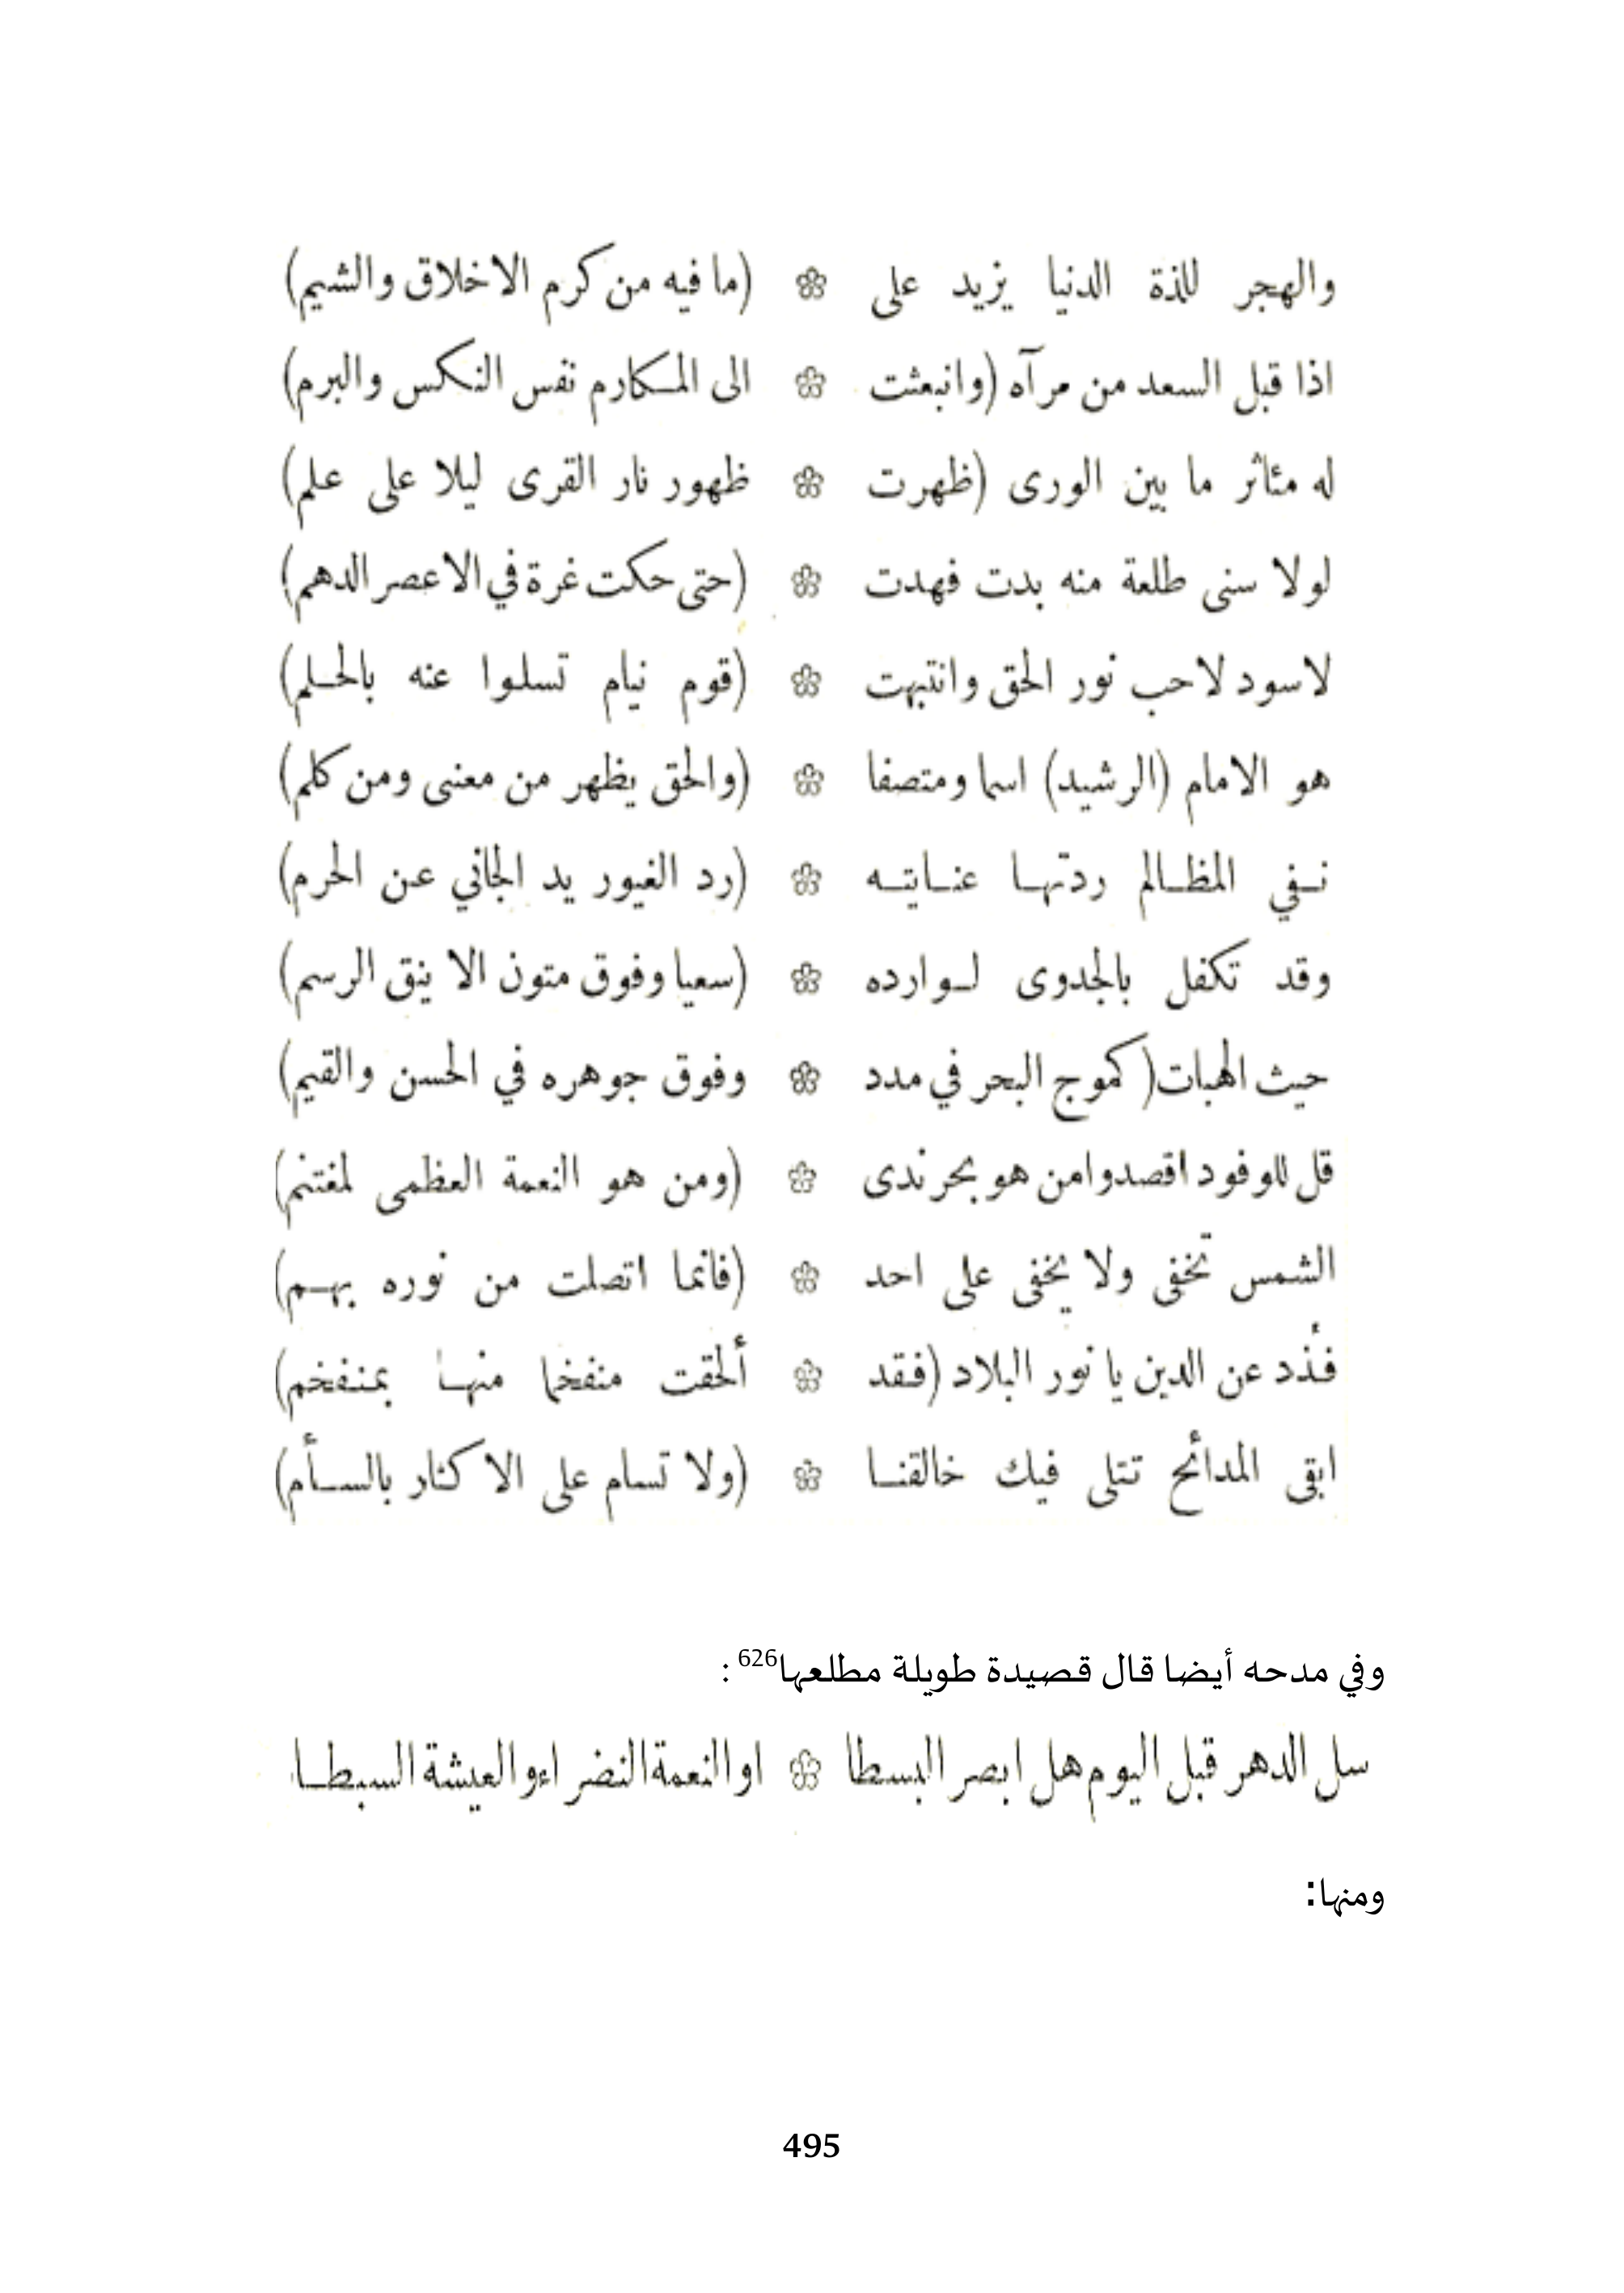 والهجر للذة الدنيا يزيد على ❀ (ما فيه من كرم الاخلاق والشيم)
اذا قبل السعد من مرآه (وانبعثت ❀ الى المكارم نفس النكس والبرم)
له مئاثر ما بين الورى (ظهرت ❀ ظهور نار القرى ليلا على علم)
لولا سنى طلعة منه بدت فهدت ❀ (حتى حكت غرة في الاعصر الدهم)
لاسود لاحب نور الحق وانتبهت ❀ (قوم نيام تسلوا عنه بالحلم)
هو الامام (الرشيد) اسما ومتصفا ❀ (والحق يظهر من معنى ومن كلم)
نفي المظالم ردتها عنايته ❀ (رد الغيور يد الجاني عن الحرم)
وقد تكفل بالجدوى لوارده ❀ (سعيا وفوق متون الا ينق الرسم)
حيث الهبات (كموج البحر في مدد ❀ وفوق جوهره في الحسن والقيم)
قل للوفود اقصدوا من هو بحر ندى ❀ (ومن هو النعمة العظمى لمغتنم)
الشمس تخفى ولا يخفى على احد ❀ (فانما اتصلت من نوره بهم)
فذد عن الدين يا نور البلاد (فقد ❀ ألحقت منفخما منها بمنفخم)
ابقى المدائح تتلى فيك خالقنا ❀ (ولا تسام على الاكثار بالسأم)
وفي مدحه أيضا قال قصيدة طويلة مطلعها626 :
سل الدهر قبل اليوم هل ابصر البسطا ❀ او النعمة النضراء والعيشة السبطا
ومنها:
495